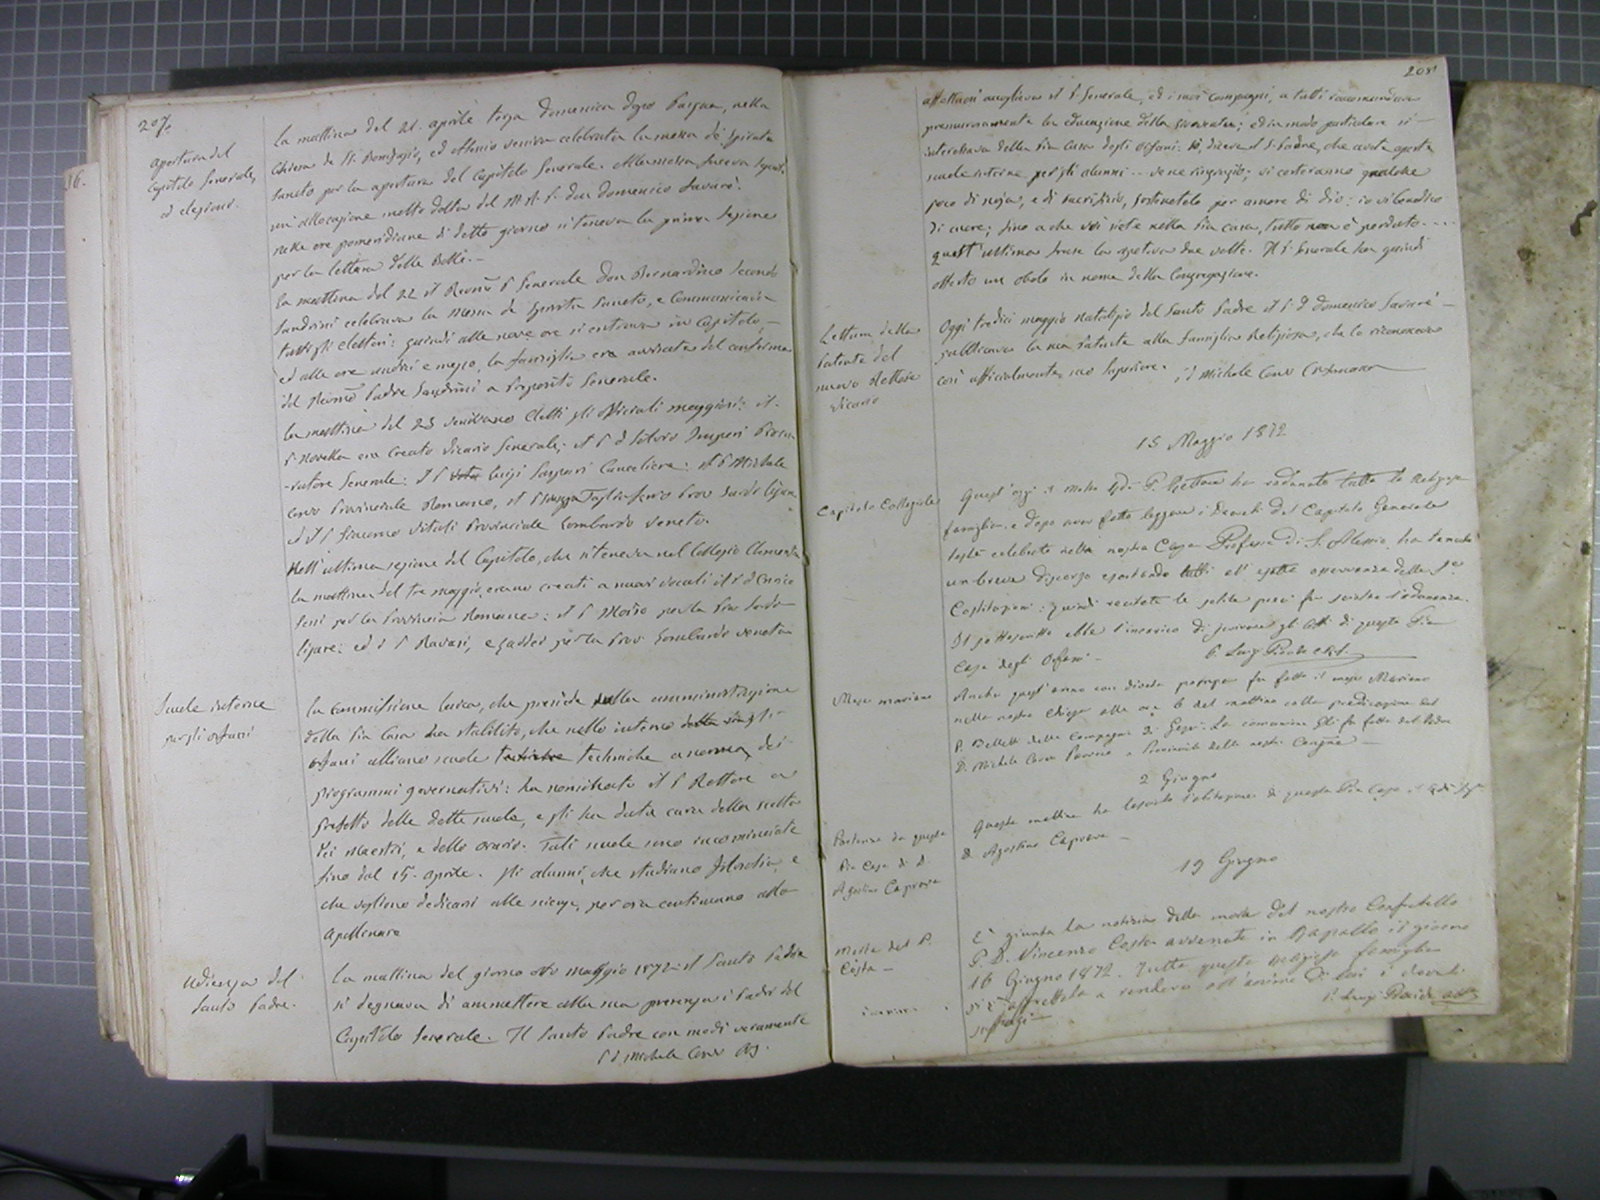 207.
Apertura del
Capitolo Generale,
ed elezioni.
La mattina del 21. aprile terza domenica dopo Pasqua, nella
Chiesa de SS. Bonifazio, ed Alessio veniva celebrata la messa de Spiritu
Sancto per la apertura del Capitolo Generale. Alla messa faceva seguito
un'allocuzione molto dotta del M. R. P. don Domenico Savarè.
nelle ore pomeridiane di detto giorno si teneva la prima sezione
per la lettura delle Bolle.
La mattina del 22 il Reṽmo P. Generale don Bernardino Secondo
Sandrini celebrava la Messa de Spiritu Sancto, e Communicava
tutti gli elettori: quindi alle nove ore si entrava in Capitolo,
ed alle ore undici e mezzo, la famiglia era avvisata del conferma
del Reṽmo Padre Sandrini a Preposito Generale.
La mattina del 23 venivano eletti gli Officiali maggiori: il
P. Novella era creato Vicario Generale; il P. d. Silvio Imperi Procu-
ratore Generale: il P. Luigi Gaspari Cancelliere: il P. Michele
Conso Provinciale Romano, il P. Tagliaferro Prov. Sardo Ligure,
ed il P. Giacomo Vitali Provinciale Lombardo Veneto.
Nell'ultima sezione del Capitolo, che si teneva nel Collegio Clementino
la mattina del tre maggio, erano creati a nuovi vocali il P. d. Enrico
Gessi per la Provincia Romana: il P. Moizo per la Prov. Sardo
Ligure: ed i P. Ravasi, e Gaddi per la Prov. Lombardo veneta
Scuole interne
per gli orfani
La commissione laica, che presiede alla amministrazione
della Pia Casa ha stabilito, che nello interno gli
Orfani abbiano scuole techniche a norma dei
programmi governativi: ha nominato il P. Rettore a
prefetto delle dette scuole, e gli ha dato cura della scelta
dei Maestri, e dello orario. Tali scuole sono incominciate
fino dal 15. aprile. Gli alunni, che studiano filosofia, e
che vogliono dedicarsi alle scienze, per ora continuano allo
Apollinare
Udienza del
Santo Padre.
La mattina del giorno otto maggio 1872 il Santo Padre
si degnava di ammettere alla sua presenza i Padri del
Capitolo Generale. Il Santo Padre con modi veramente
P. d. Michele Conso Att.
208
affettuosi accoglieva il P. Generale, ed i suoi compagni, a tutti raccomandava
premurosamente la educazione della gioventù; ed in modo particolare si
interessava della Pia Casa degli Orfani: So, diceva il S. Padre, che avete aperte
scuole interne per gli alunni... ve ne ringrazio; vi costeranno qualche
poco di noja, e di sacrificio, sostenetelo per amore di Dio: io vi benedico
di cuore; fino a che voi siete nella Pia casa, tutto non è perduto....
quest'ultima frase la ripeteva due volte. Il P. Generale ha quindi
offerto un obolo in nome della Congregazione.
Lettura della
Patente del
nuovo Rettore
Vicario
Oggi tredici maggio natalizio del Santo Padre il P. D. Domenico Savarè
pubblicava la sua Patente alla famiglia Religiosa, che lo riconosceva
così officialmente suo Superiore.
P. d. Michele Conso
15 Maggio 1872
Capitolo Collegiale
Quest'oggi il Molto Rdo P. Rettore ha radunato tutta la Religiosa
famiglia, e dopo aver fatto leggere i Decreti del Capitolo Generale
testè celebrato nella nostra Casa Professa di S. Alessio, ha tenuto
un breve discorso esortando tutti all'esatta osservanza delle Ste
Costituzioni: quindi recitate le solite preci fu sciolta l'adunanza.
Il sottoscritto ebbe l'incarico di scrivere gli Atti di questa Pia
Casa degli Orfani.
P. Luigi Procida
Mese mariano
Anche quest'anno con divota pompa fu fatto il mese Mariano
nella nostra Chiesa alle ore 6 del mattino colla predicazione del
P. Belletti della Compagnia di Gesù. La comunione gli fu fatta dal Padre
D. Michele Conso Provinciale della nostra Congne
2 Giugno
Partenza da questa
Pia Casa di D.
Agostino Caprove
Questa mattina ha lasciato l'abitazione di questa Pia Casa il
D. Agostino Caprove
19 Giugno
Morte del P.
Costa
È giunta la notizia della morte del nostro Confratello
P. D. Vincenzo Costa avvenuta in Rapallo il giorno
16 Giugno 1872. Tutta questa religiosa famiglia
si è affrettata a rendere all'anima di lui i dovuti
suffragi
P. Luigi Procida Att.